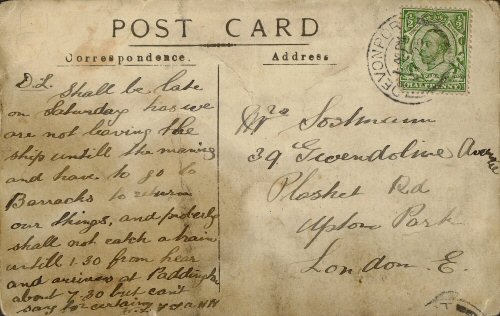 POST CARD
Correspondence.
Address
D.L. Shall be late
on Saturday has we
are not leaving the
ship untill the morning
and have to go to
Barracks to return
our things, and proberly
shall not catch a train
untill 1.30 from hear
and arrives at Paddington
about 7.30 but can't
say for certing
DEVONPORT
HALFPENNY
Mrs Sostmann
39 Gwendoline Avenue
Plashet Rd
Upton Park
London. E.